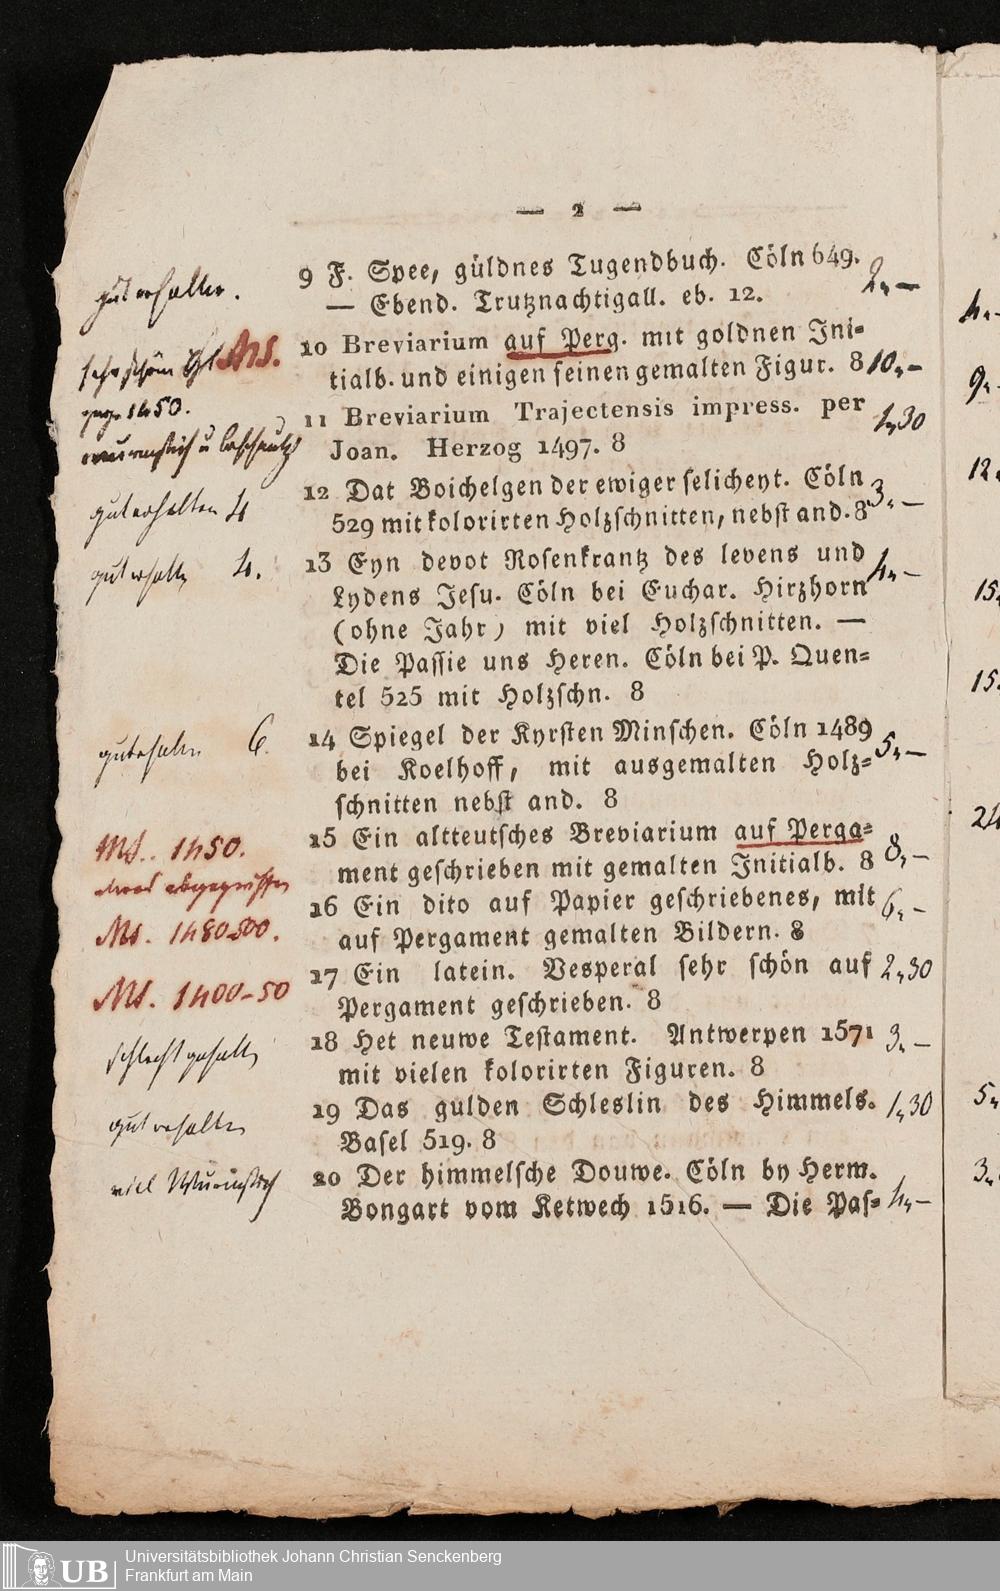 — 2 —
gut erhalten.
9 F. Spee, güldnes Tugendbuch. Cöln 649. 2„—
— Ebend. Trutznachtigall. eb. 12.
sehr schön Ms.
10 Breviarium auf Perg. mit goldnen Ini-
tialb. und einigen feinen gemalten Figur. 8 10„—
1450.
11 Breviarium Trajectensis impress. per 1„30
wurmstich u beschmutzt
Joan. Herzog 1497. 8
gut erhalten 4
12 Dat Boichelgen der ewiger selicheyt. Cöln 3„—
529 mit kolorirten Holzschnitten, nebst and. 8
gut erhalten 4.
13 Eyn devot Rosenkrantz des levens und 4„—
Lydens Jesu. Cöln bei Euchar. Hirzhorn
(ohne Jahr) mit viel Holzschnitten. —
Die Passie uns Heren. Cöln bei P. Quen-
tel 525 mit Holzschn. 8
gut erhalten 6.
14 Spiegel der Kyrsten Minschen. Cöln 1489 5„—
bei Koelhoff, mit ausgemalten Holz-
schnitten nebst and. 8
Ms. 1450.
15 Ein altteutsches Breviarium auf Perga-
etwas abgegriffen
ment geschrieben mit gemalten Initialb. 8 8„—
Ms. 1480-500.
16 Ein dito auf Papier geschriebenes, mit 6„—
auf Pergament gemalten Bildern. 8
Ms. 1400-50
17 Ein latein. Vesperal sehr schön auf 2„30
Pergament geschrieben. 8
schlecht gehalten
18 Het neuwe Testament. Antwerpen 1571 3„—
mit vielen kolorirten Figuren. 8
gut erhalten
19 Das gulden Schleslin des Himmels. 1„30
Basel 519. 8
viel Wurmstich
20 Der himmelsche Douwe. Cöln by Herm.
Bongart vom Ketwech 1516. — Die Pas- 4„—
4„-
9„-
12„
15„
15„
24
5„
3„
UB Universitätsbibliothek Johann Christian Senckenberg
Frankfurt am Main